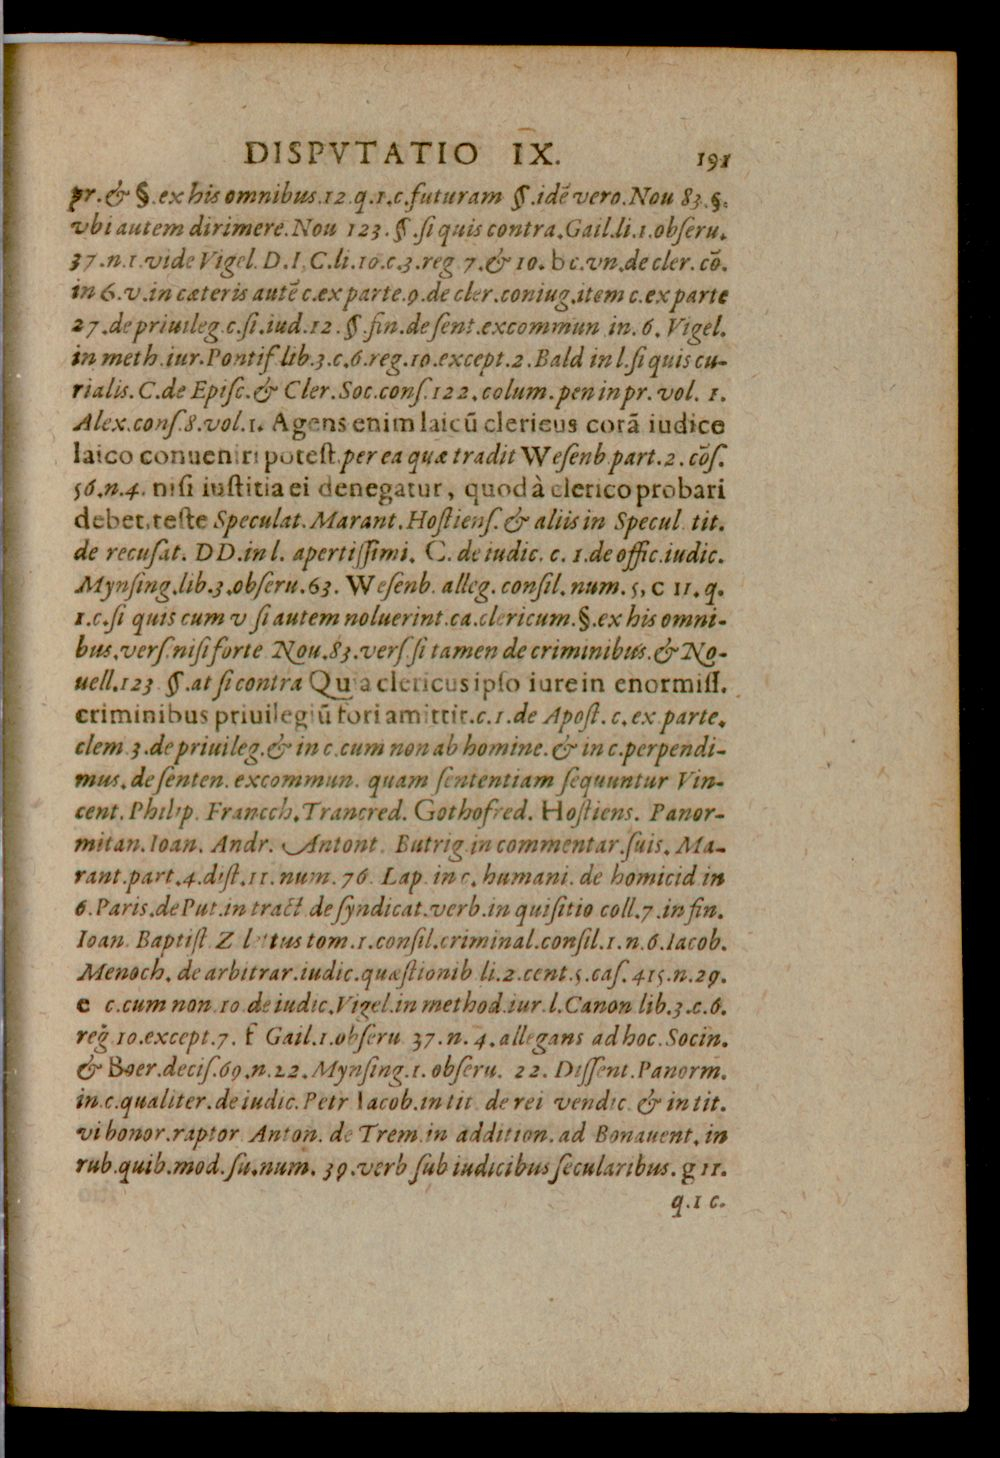 DISPVTATIO IX. 191
pr. & §. ex his omnibus.12.q.1.c.futuram §.idē vero.Nou 83.§.
vbi autem dirimere.Nou 123.§.ſi quis contra.Gail.li.1.obſeru.
37.n.1.vide Vigel. D.I.C.li.10.c.3.reg 7.& 10. b c.vn.de cler. cō.
in 6.v.in cæteris autē c.ex parte.9.de cler.coniug.item c.ex parte
27.de priuileg.c.ſi.iud.12.§.fin.de ſent.excommun in.6. Vigel.
in meth.iur.Pontif lib.3.c.6.reg.10.except.2.Bald in l.ſi quis cu-
rialis.C.de Epiſc.& Cler.Soc.conſ.122.colum.pen in pr.vol. 1.
Alex.conſ.8.vol.1. Agens enim laicū clericus corā iudice
laico conueniri poteſt.per ea quæ tradit Weſenb.part.2.cōſ.
56.n.4. niſi iuſtitia ei denegatur, quod à clerico probari
debet,teſte Speculat.Marant.Hoſtienſ.& aliis in Specul tit.
de recuſat. DD.in l. apertiſſimi. C. de iudic. c. 1.de offic.iudic.
Mynſing.lib.3.obſeru.63. Weſenb. alleg. conſil.num.5, c 11.q.
1.c.ſi quis cum v ſi autem noluerint.ca.clericum.§.ex his omni-
bus.verſ.niſi forte Nou.83.verſ.ſi tamen de criminibus.& No-
uell.123 §.at ſi contra Quia clericus ipſo iure in enormiſſ.
criminibus priuilegiū fori amittit.c.1.de Apoſt.c.ex parte.
clem 3.de priuileg.& in c.cum non ab homine.& in c.perpendi-
mus.de ſenten.excommun. quam ſententiam ſequuntur Vin-
cent. Philip. Francch.Trancred. Gothofred. Hoſtiens. Panor-
mitan.Ioan. Andr. Antont. Butrig in commentar.ſuis. Ma-
rant.part.4.diſt.11.num.76. Lap in c. humani. de homicid in
6.Paris.de Put.in tract de ſyndicat.verb.in quiſitio coll.7.in fin.
Ioan. Baptiſt tom.1.conſil.criminal.conſil.1.n.6.Iacob.
Menoch. de arbitrar.iudic.quæſtionib li.2.cent.5.caſ.415.n.29.
e c.cum non 10 de iudic.Vigel.in method.iur.l.Canon lib.3.c.6.
reg 10.except.7. f Gail.1.obſeru 37.n.4.allegans ad hoc.Socin.
& Boer.deciſ.69.n.22.Mynſing.1.obſeru. 22. Diſſent.Panorm.
in.c.qualiter.de iudic.Petr Iacob.in tit de rei vendic & in tit.
vi bonor.raptor Anton. de Trem.in addition. ad Bonauent. in
rub.quib.mod.ſu.num. 39.verb ſub iudicibus ſecularibus. g 11.
q.1 c.